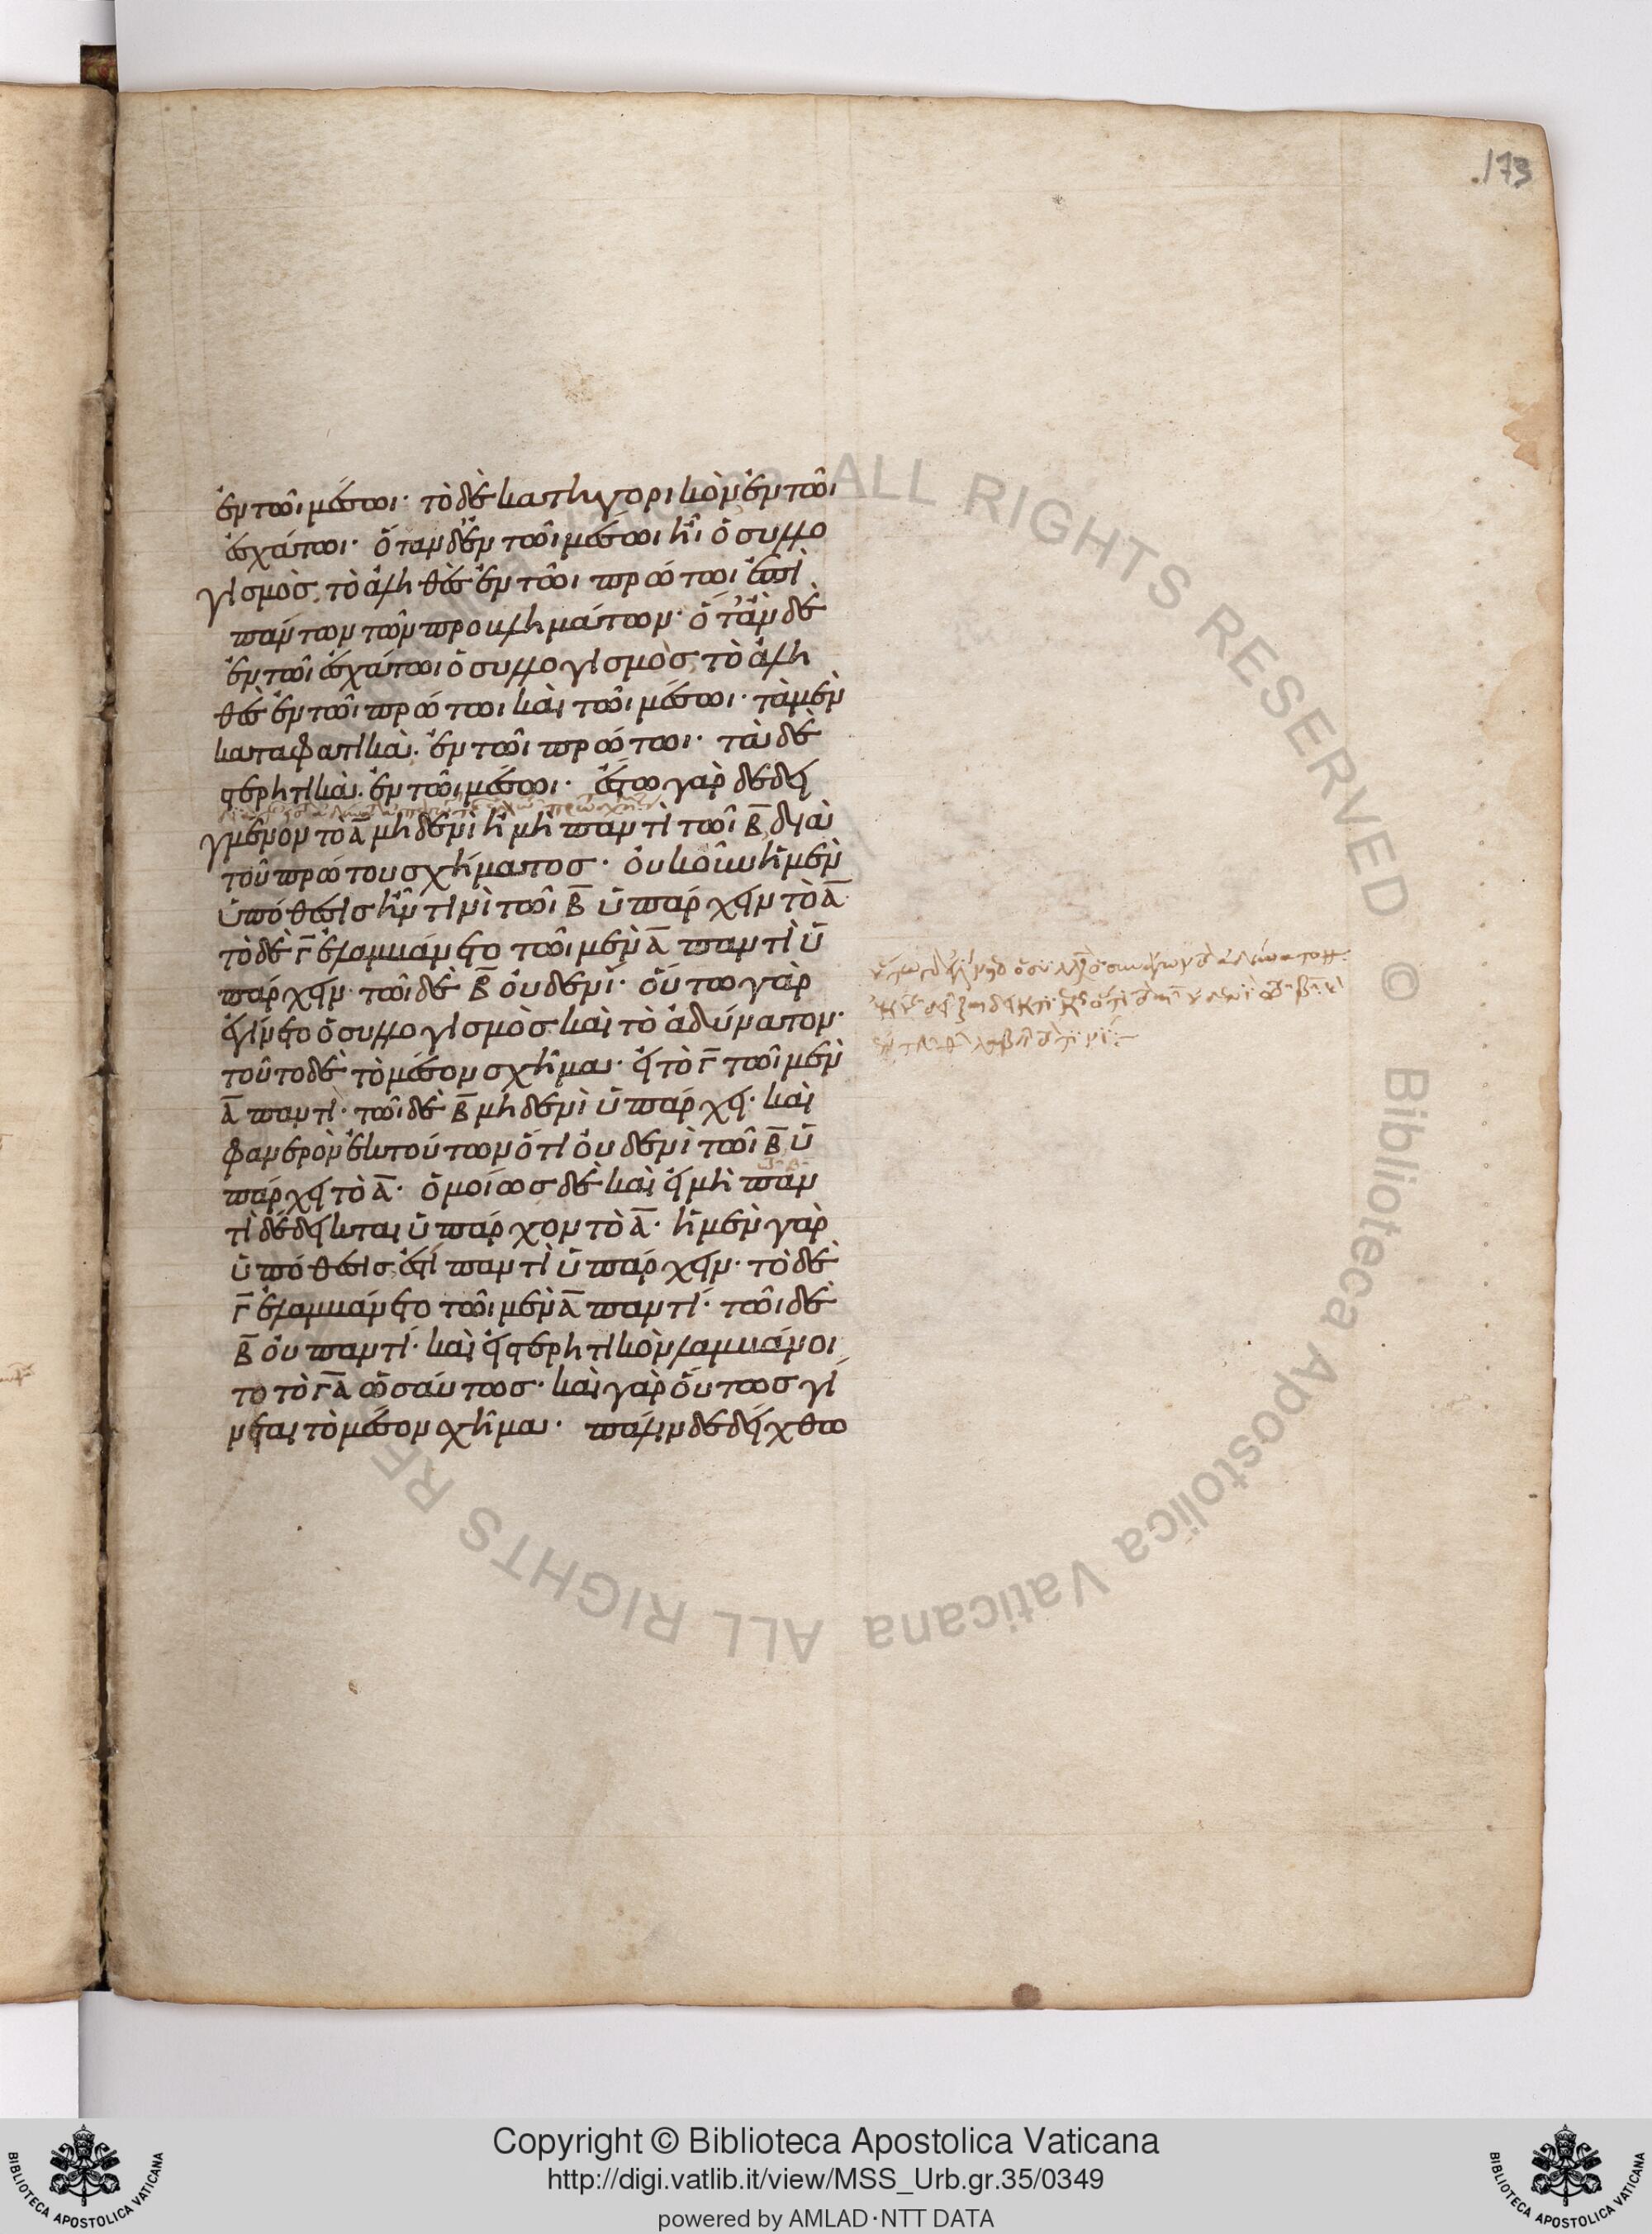 .173
ἐν τῶι μέσωι· τὸ δὲ κατηγορικὸν ἐν τῶι
ἐσχάτωι· ὅταν δ' ἐν τῶι μέσωι ἦι ὁ συλλο
γισμὸς, τὸ ἀληθὲς ἐν τῶι πρώτωι ἐπὶ
πάντων τῶν προβλημάτων· ὅταν δὲ
ἐν τῶι ἐσχάτωι ὁ συλλογισμὸς, τὸ ἀλη
θὲς ἐν τῶι πρώτωι καὶ τῶι μέσωι· τὰ μὲν
καταφατικὰ· ἐν τῶι πρώτωι· τὰ δὲ
στερητικὰ· ἐν τῶι μέσωι· ἔστω γὰρ δεδει
γμένον τὸ Α μηδενὶ ἢ μὴ παντὶ τῶι Β διὰ
τοῦ πρώτου σχήματος· οὐκοῦν ἡ μὲν
ὑπόθεσις ἦν τινὶ τῶι Β ὑπάρχειν τὸ Α·
τὸ δὲ Γ ἐλαμβάνετο τῶι μὲν Α παντὶ ὑ
πάρχειν· τῶι δὲ Β οὐδενί· οὕτω γὰρ
ἐγίνετο ὁ συλλογισμὸς καὶ τὸ ἀδύνατον·
τοῦτο δὲ τὸ μέσον σχῆμα· εἰ τὸ Γ τῶι μὲν
Α παντί· τῶι δὲ Β μηδενὶ ὑπάρχει· καὶ
φανερὸν ἐκ τούτων ὅτι οὐδενὶ τῶι Β ὑ
πάρχει τὸ Α· ὁμοίως δὲ καὶ εἰ μὴ παν
τὶ δέδεικται ὑπάρχον τὸ Α· ἡ μὲν γὰρ
ὑπόθεσις ἐστὶ παντὶ ὑπάρχειν· τὸ δὲ
Γ ἐλαμβάνετο τῶι μὲν Α παντί· τῶι δὲ
Β οὐ παντί· καὶ εἰ στερητικὸν λαμβάνοι
το τὸ ΓΑ ὡσαύτως· καὶ γὰρ οὕτως γί
νεται τὸ μέσον σχῆμα· πάλιν δεδείχθω
ALL RIGHTS RESERVED © Biblioteca Apostolica Vaticana
Copyright © Biblioteca Apostolica Vaticana
http://digi.vatlib.it/view/MSS_Urb.gr.35/0349
powered by AMLAD·NTT DATA
BIBLIOTECA APOSTOLICA VATICANA
BIBLIOTECA APOSTOLICA VATICANA